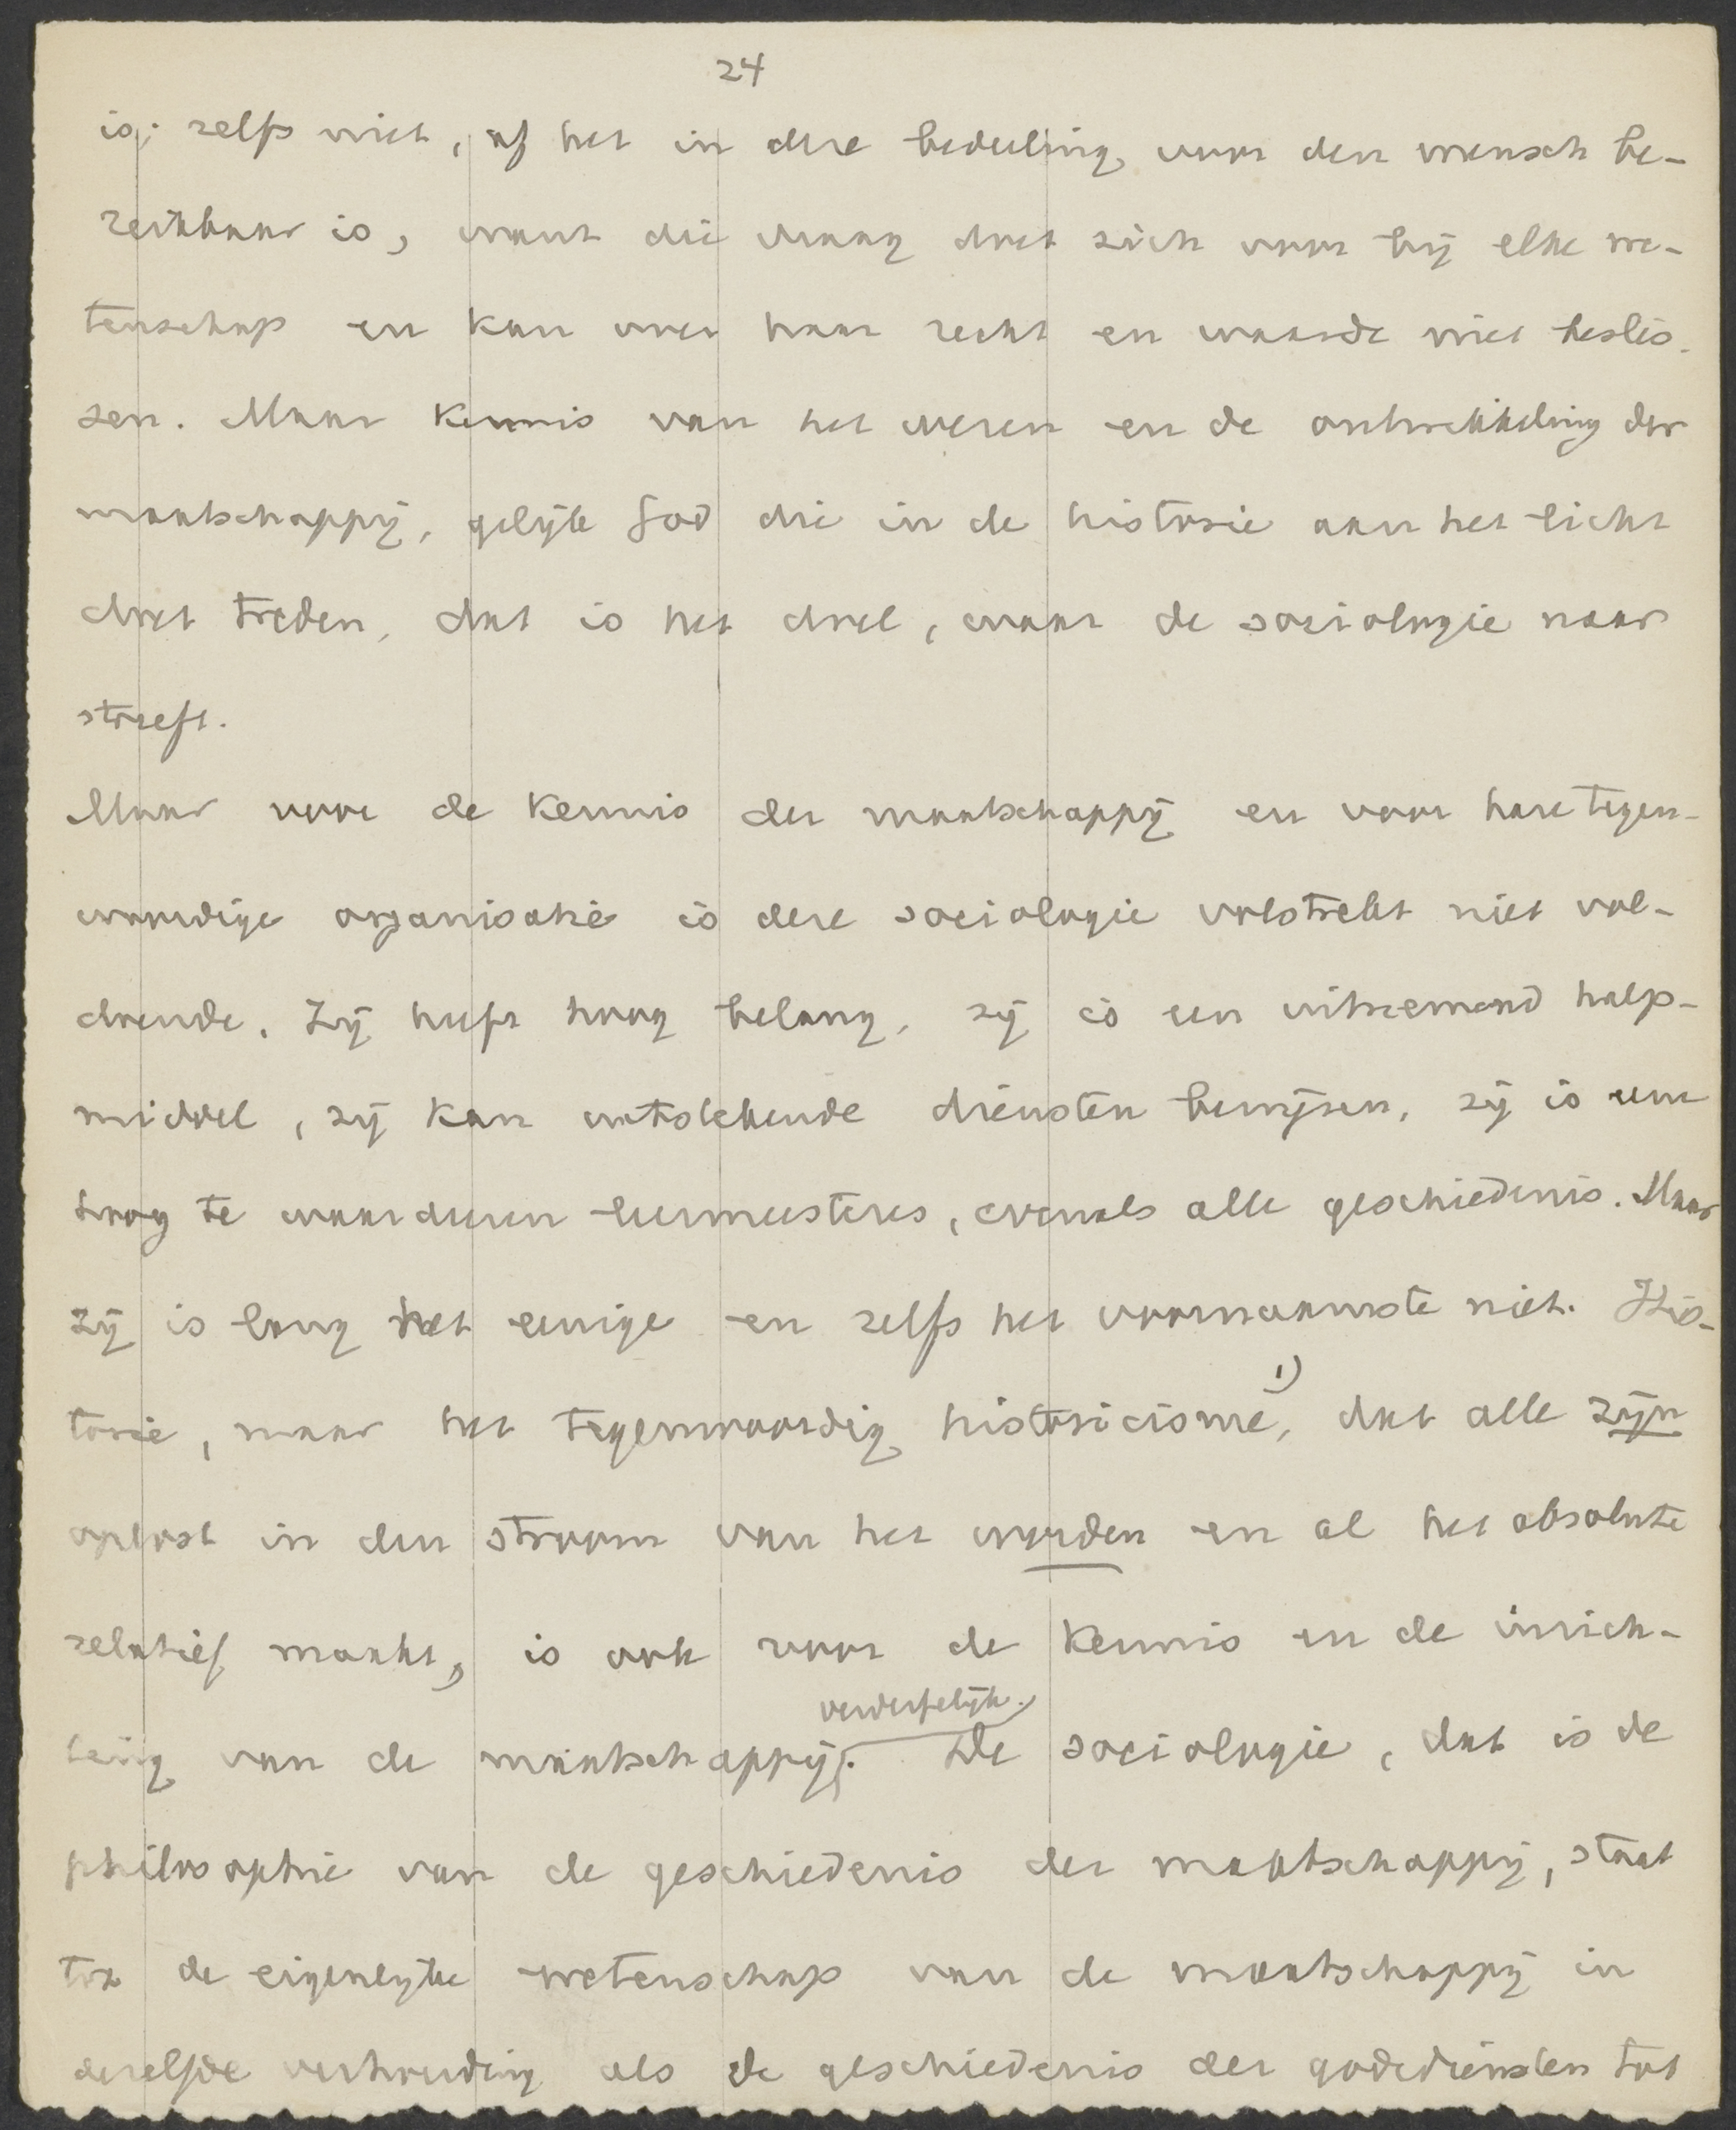 24
is; zelfs niet, of het in deze bedeeling voor den mensch be-
reikbaar is, want die vraag doet zich voor bij elke we-
tenschap en kan over haar recht en waarde niet beslis-
sen. Maar kennis van het wezen en de ontwikkeling der
maatschappij, gelijk God die in de historie aan het licht
doet treden, dat is het doel, waar de sociologie naar
streeft.
Maar voor de kennis der maatschappij en voor hare tegen-
woordige organisatie is deze sociologie volstrekt niet vol-
doende. Zij heeft hoog belang, zij is een uitnemend hulp-
middel, zij kan uitstekende diensten bewijzen, zij is eene
hoog te waardeeren leermeesteres, evenals alle geschiedenis. Maar
zij is lang het eenige en zelfs het voornaamste niet. His-
torie, maar het tegenwoordig historicisme, 1) dat alle zijn
oplost in den stroom van het worden en al het absolute
relatief maakt, is ook voor de kennis en de inrich-
verderfelijk.
ting van de maatschappij. De sociologie, dat is de
philosophie van de geschiedenis der maatschappij, staat
tot de eigenlijke wetenschap van de maatschappij in
dezelfde verhouding als de geschiedenis der godsdiensten tot